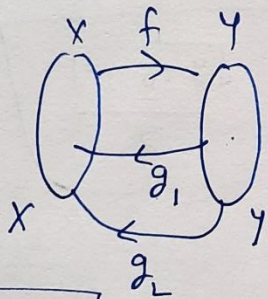 X f Y
g₁
X Y
g₂